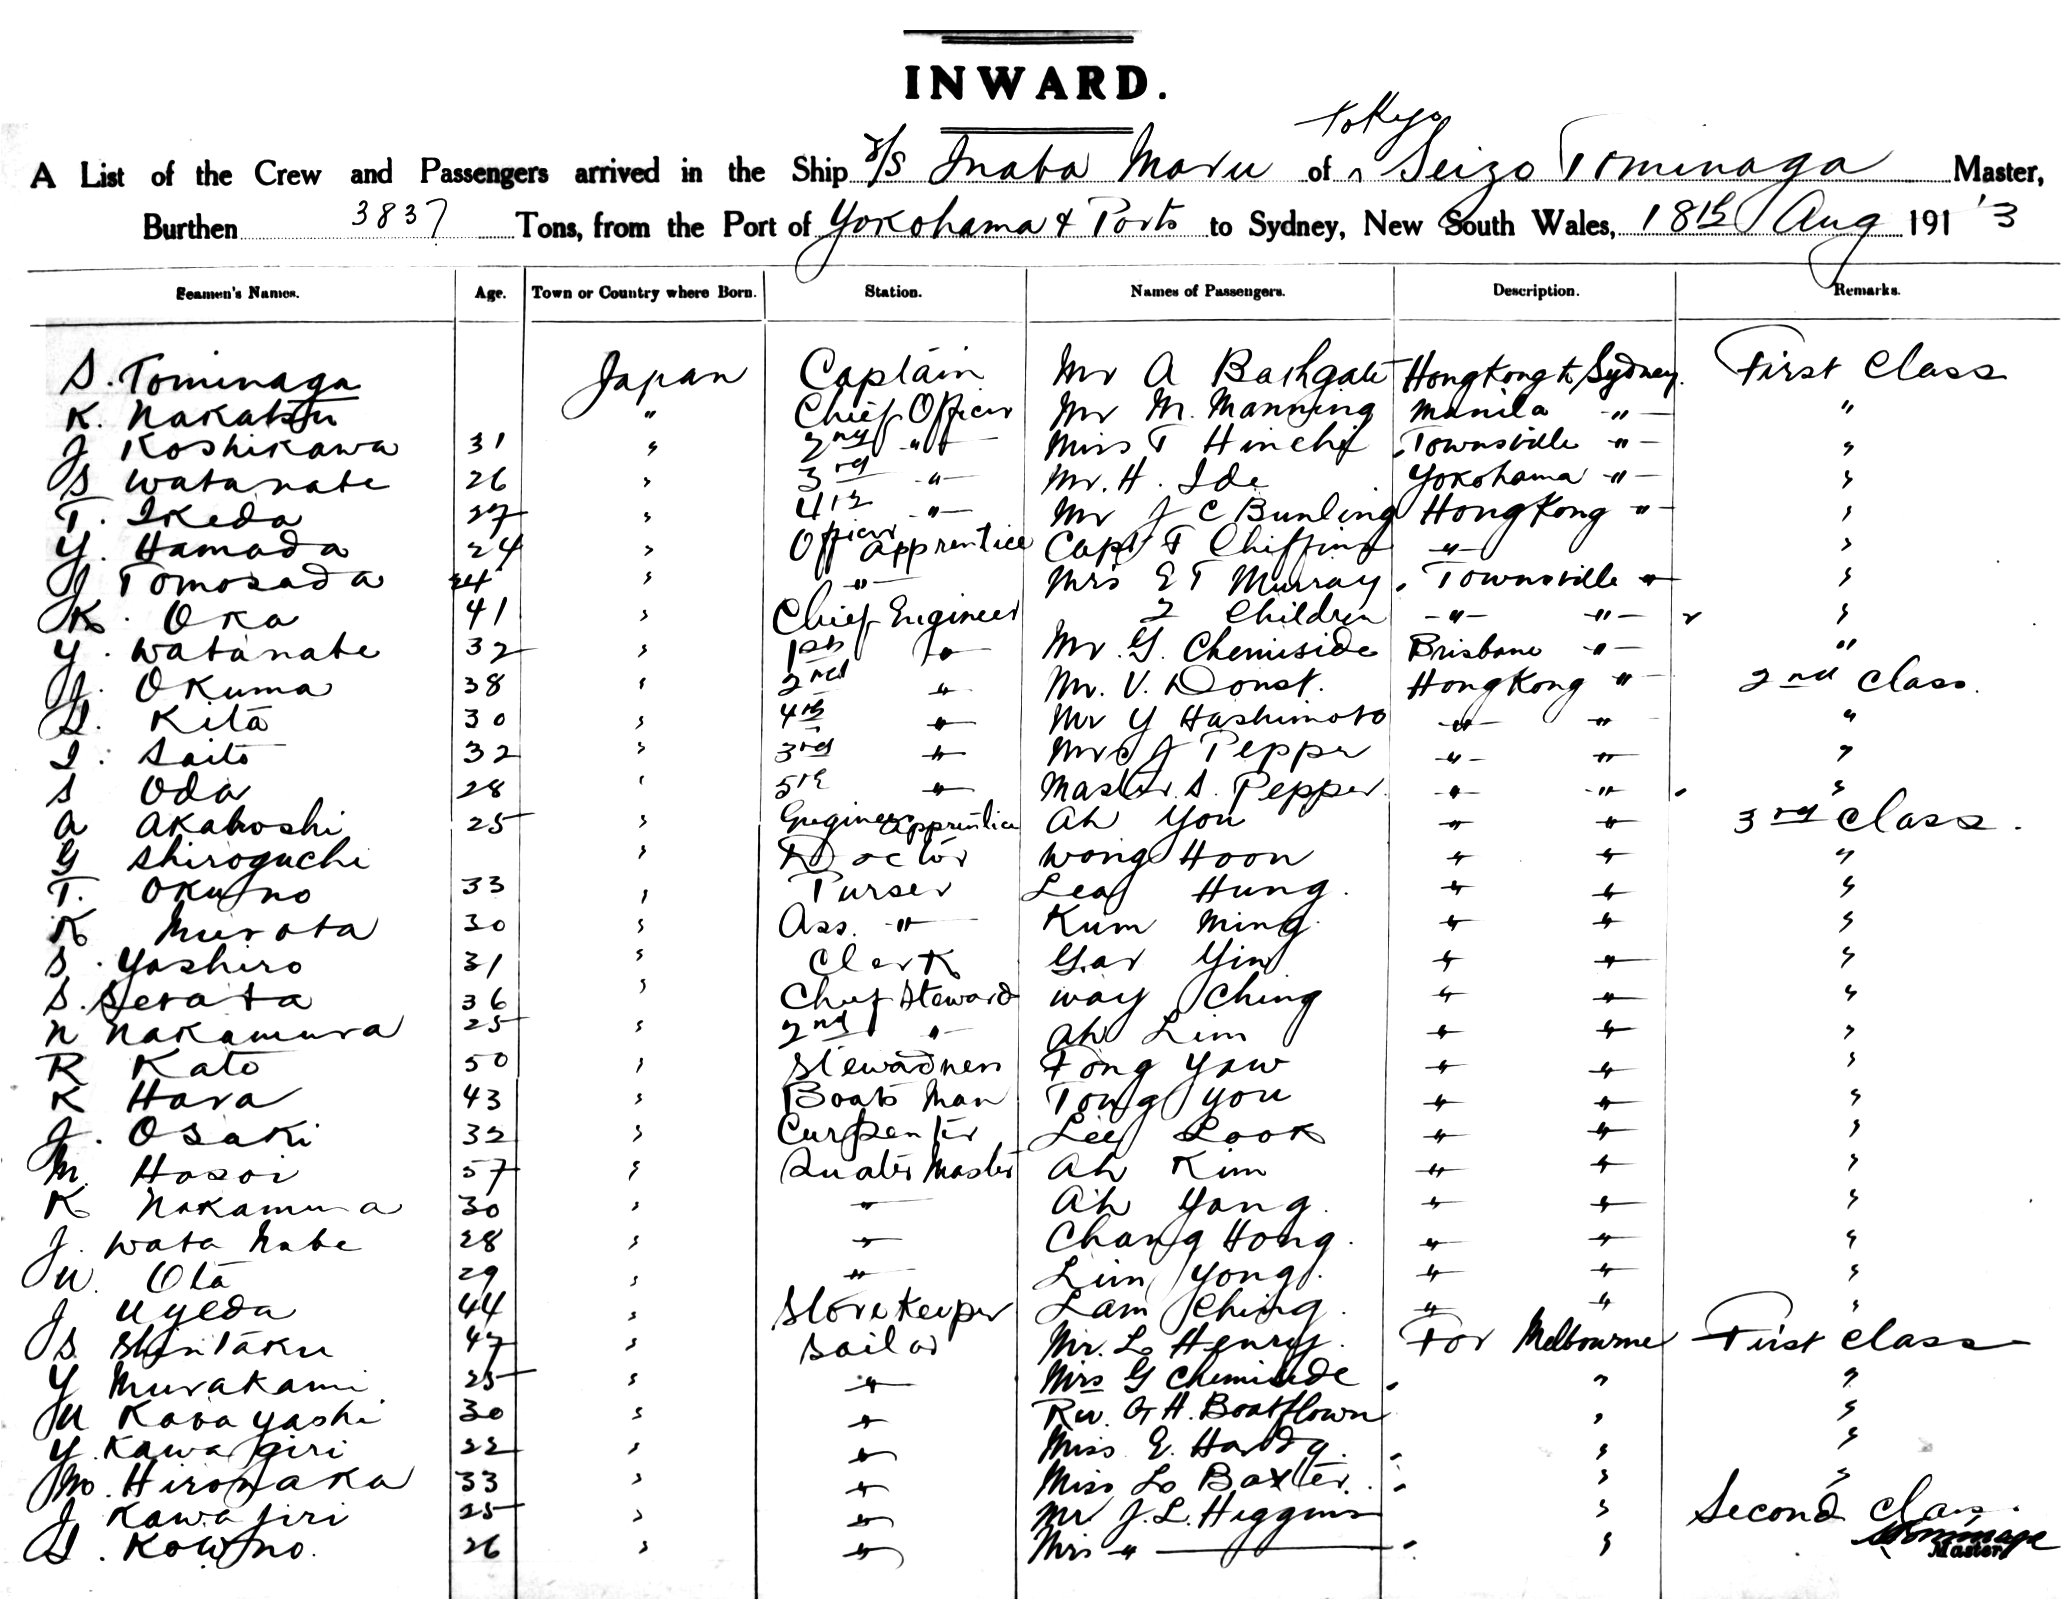 INWARD.
Tokyo
A List of the Crew and Passengers arrived in the Ship S/S Inaba Maru of Seizo Tominaga Master,
Burthen 3837 Tons, from the Port of Yokohama & Ports to Sydney, New South Wales, 18th Aug 191'3
Seamen's Names. Age. Town or Country where Born. Station. Names of Passengers. Description. Remarks.
S. Tominaga Japan Captain Mr A Bathgate Hongkong to Sydney. First Class
K. Nakatsu " Chief Officer Mr M. Manning Manila " "
J Koshikawa 31 " 2nd " Miss T Hinchy Townsville " "
S Watanabe 26 " 3rd " Mr. H. Ide Yokohama " "
T. Ikeda 27 " 4th " Mr J C Bunling Hongkong " "
Y. Hamada 24 " Officer Apprentice Capt T Chiffins " "
J Tomosada 24 " " Mrs E T Murray Townsville " "
K. Oka 41 " Chief Engineer 2 Children " " "
Y. Watanabe 32 " 1st " Mr. G. Chemiside Brisbane " "
J. Okuma 38 " 2nd " Mr. V. Donst. Hongkong " 2nd Class.
S. Kita 30 " 4th " Mr Y Hashimoto " " "
I. Saito 32 " 3rd " Mrs J Pepper " " "
S Oda 28 " 5th " Master S. Pepper " " "
A Akaboshi 25 " Engineer Apprentice Ah You " " 3rd Class.
G Shiroguchi " Doctor Wong Hoon " " "
T. Okuno 33 " Purser Leay Hung. " " "
K Murota 30 " Ass. " Kum Ming " " "
S. Yashiro 31 " Clerk Gar Yin " " "
S. Serata 36 " Chief Steward Way Ching " " "
N Nakamura 25 " 2nd " Ah Lim " " "
R Kato 50 " Stewadness Fong Yaw " " "
K Hara 43 " Boats Man Tong You " " "
J. Osaki 32 " Carpenter Lee Look " " "
M. Hosoi 57 " Quater Master Ah Kim " " "
K Nakamura 30 " " Ah Yang. " " "
J. Watanabe 28 " " Chang Hong. " " "
U. Ota 29 " " Lim Yong. " " "
J Uyeda 44 " Storekeeper Lam Ching. " " "
S. Shintaku 47 " Sailor Mr. L. Henry. For Melbourne First Class
Y Murakami 25 " " Mrs G Chemiside " "
U Kobayashi 30 " " Rev. G H. Boatflown " "
Y. Kawagiri 22 " " Miss E. Hardy. " "
M. Hironaka 33 " " Miss L. Baxter. " "
J Kawajiri 25 " " Mr J. L. Higgins " Second Class.
S. Kowno. 26 " " Mrs " " STominaga
Master